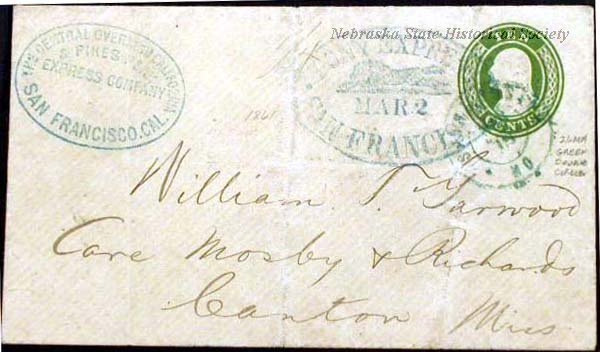 Nebraska State Historical Society
THE CENTRAL OVERLAND CALIFORNIA
PIKES
EXPRESS COMPANY
SAN FRANCISCO. CAL.
PONY EXPRESS
MAR 2
SAN FRANCISCO
CENTS
MO
1861
GREEN
William T. Yarwood
Care Mosby & Richards
Canton Miss